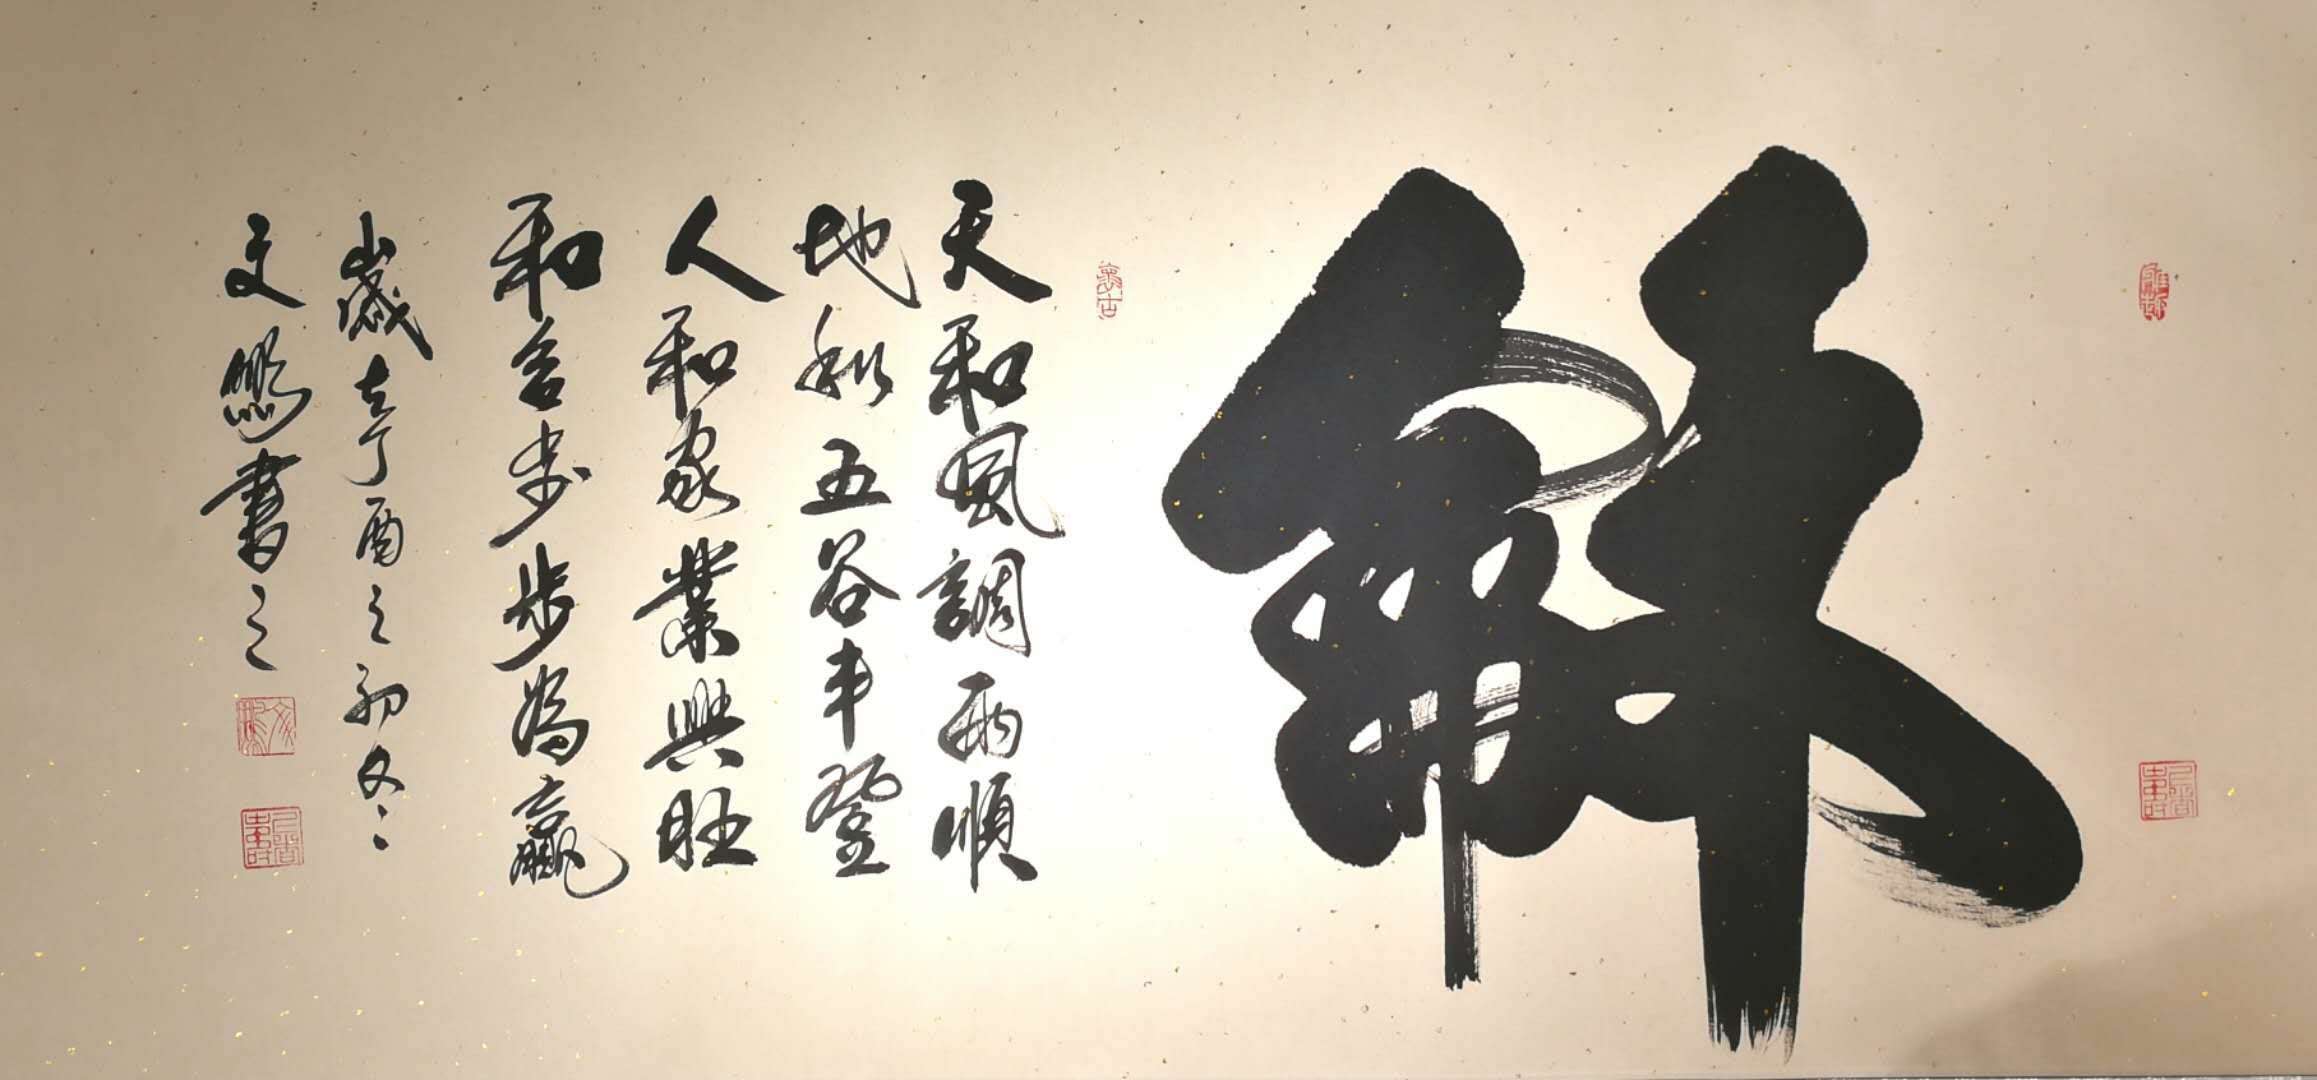 龢
天和風調雨順
地和五谷丰登
人和家業興旺
和合步步為贏
歲在丁酉之初冬
文鵬書之